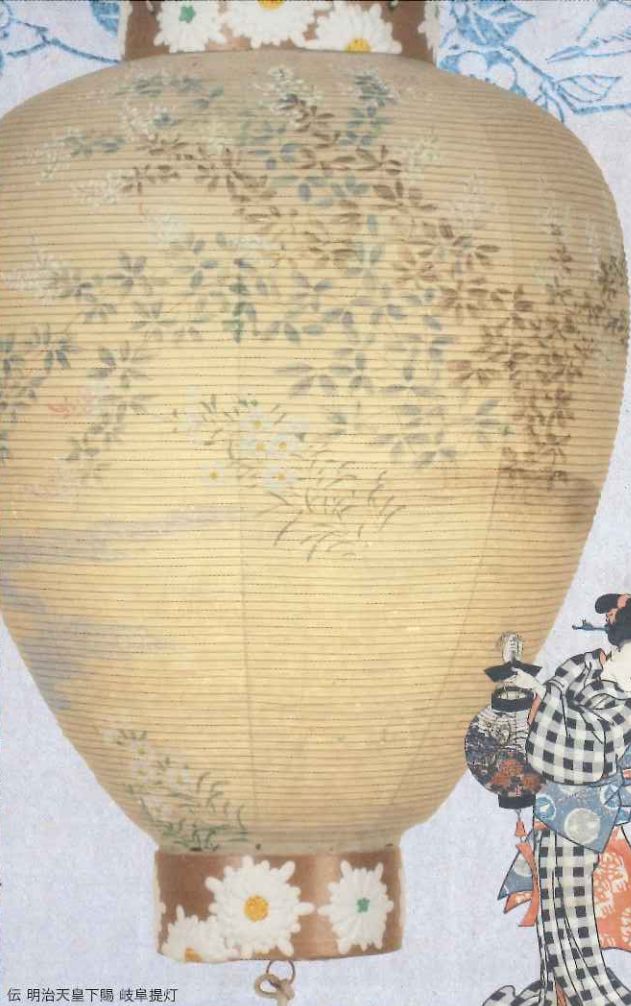 伝 明治天皇下賜 岐阜提灯